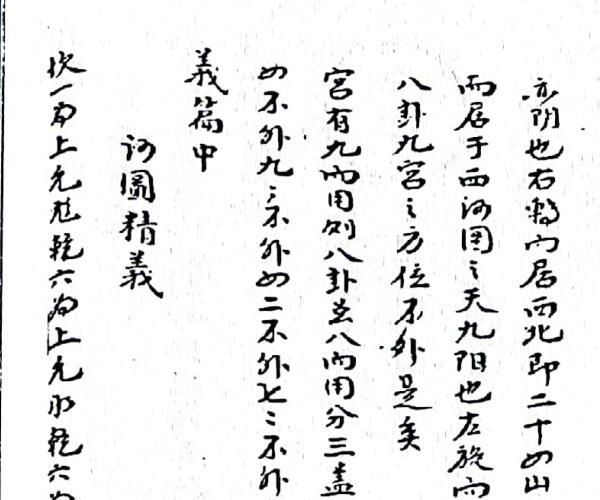 亦阴也右转而居西北即二十四山
而居于西河图之天九阳也左旋而
八卦九宫之方位不外是矣
宫有九而用列八卦并八而用分三盖
四不外九九不外四二不外七七不外
義篇中
河圖精義
坎一为上元 乾六为上元 乾六为